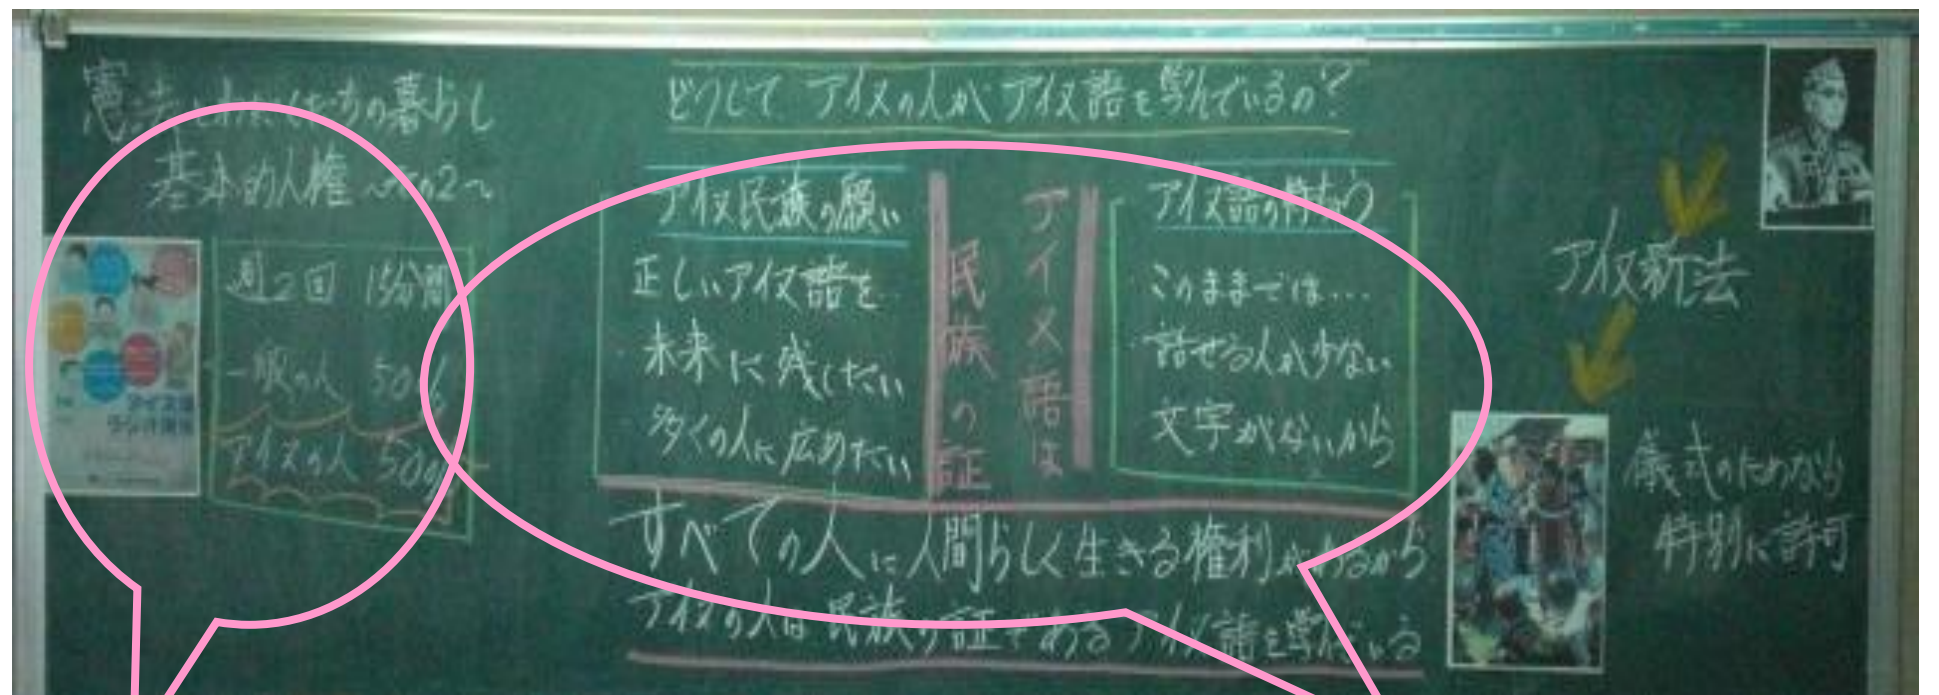 憲法とわたしたちの暮らし
基本的人権 ～その2～
週2回 15分間
一般の人 50%
アイヌの人 50%
アイヌ語
ラジオ講座
どうして アイヌの人が アイヌ語を学んでいるの?
アイヌ民族の願い
正しいアイヌ語を
未来に残したい
多くの人に広めたい
アイヌ語は
民族の証
このままでは…
話せる人が少ない
文字がないから
すべての人に人間らしく生きる権利があるから
アイヌの人は民族の証であるアイヌ語を学んでいる
アイヌ新法
儀式のためなら
特別に許可